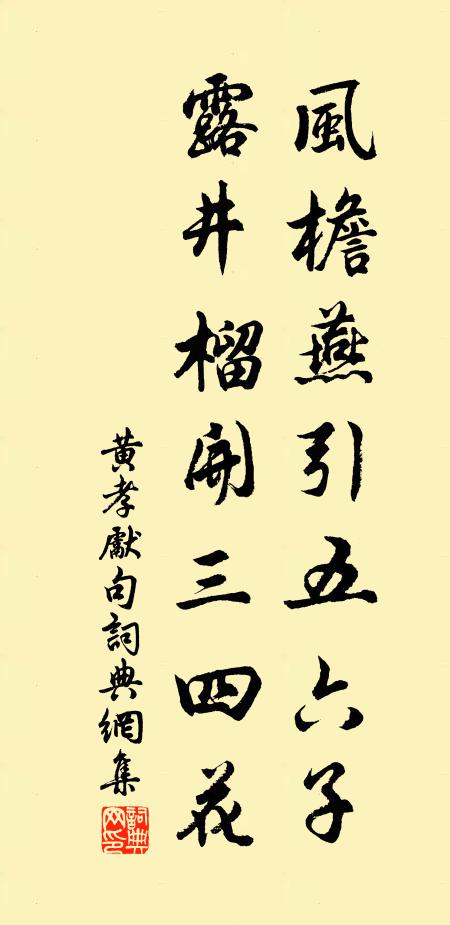 風檐燕引五六子
露井榴開三四花
黄孝獻句詞典網集
詞典
网印